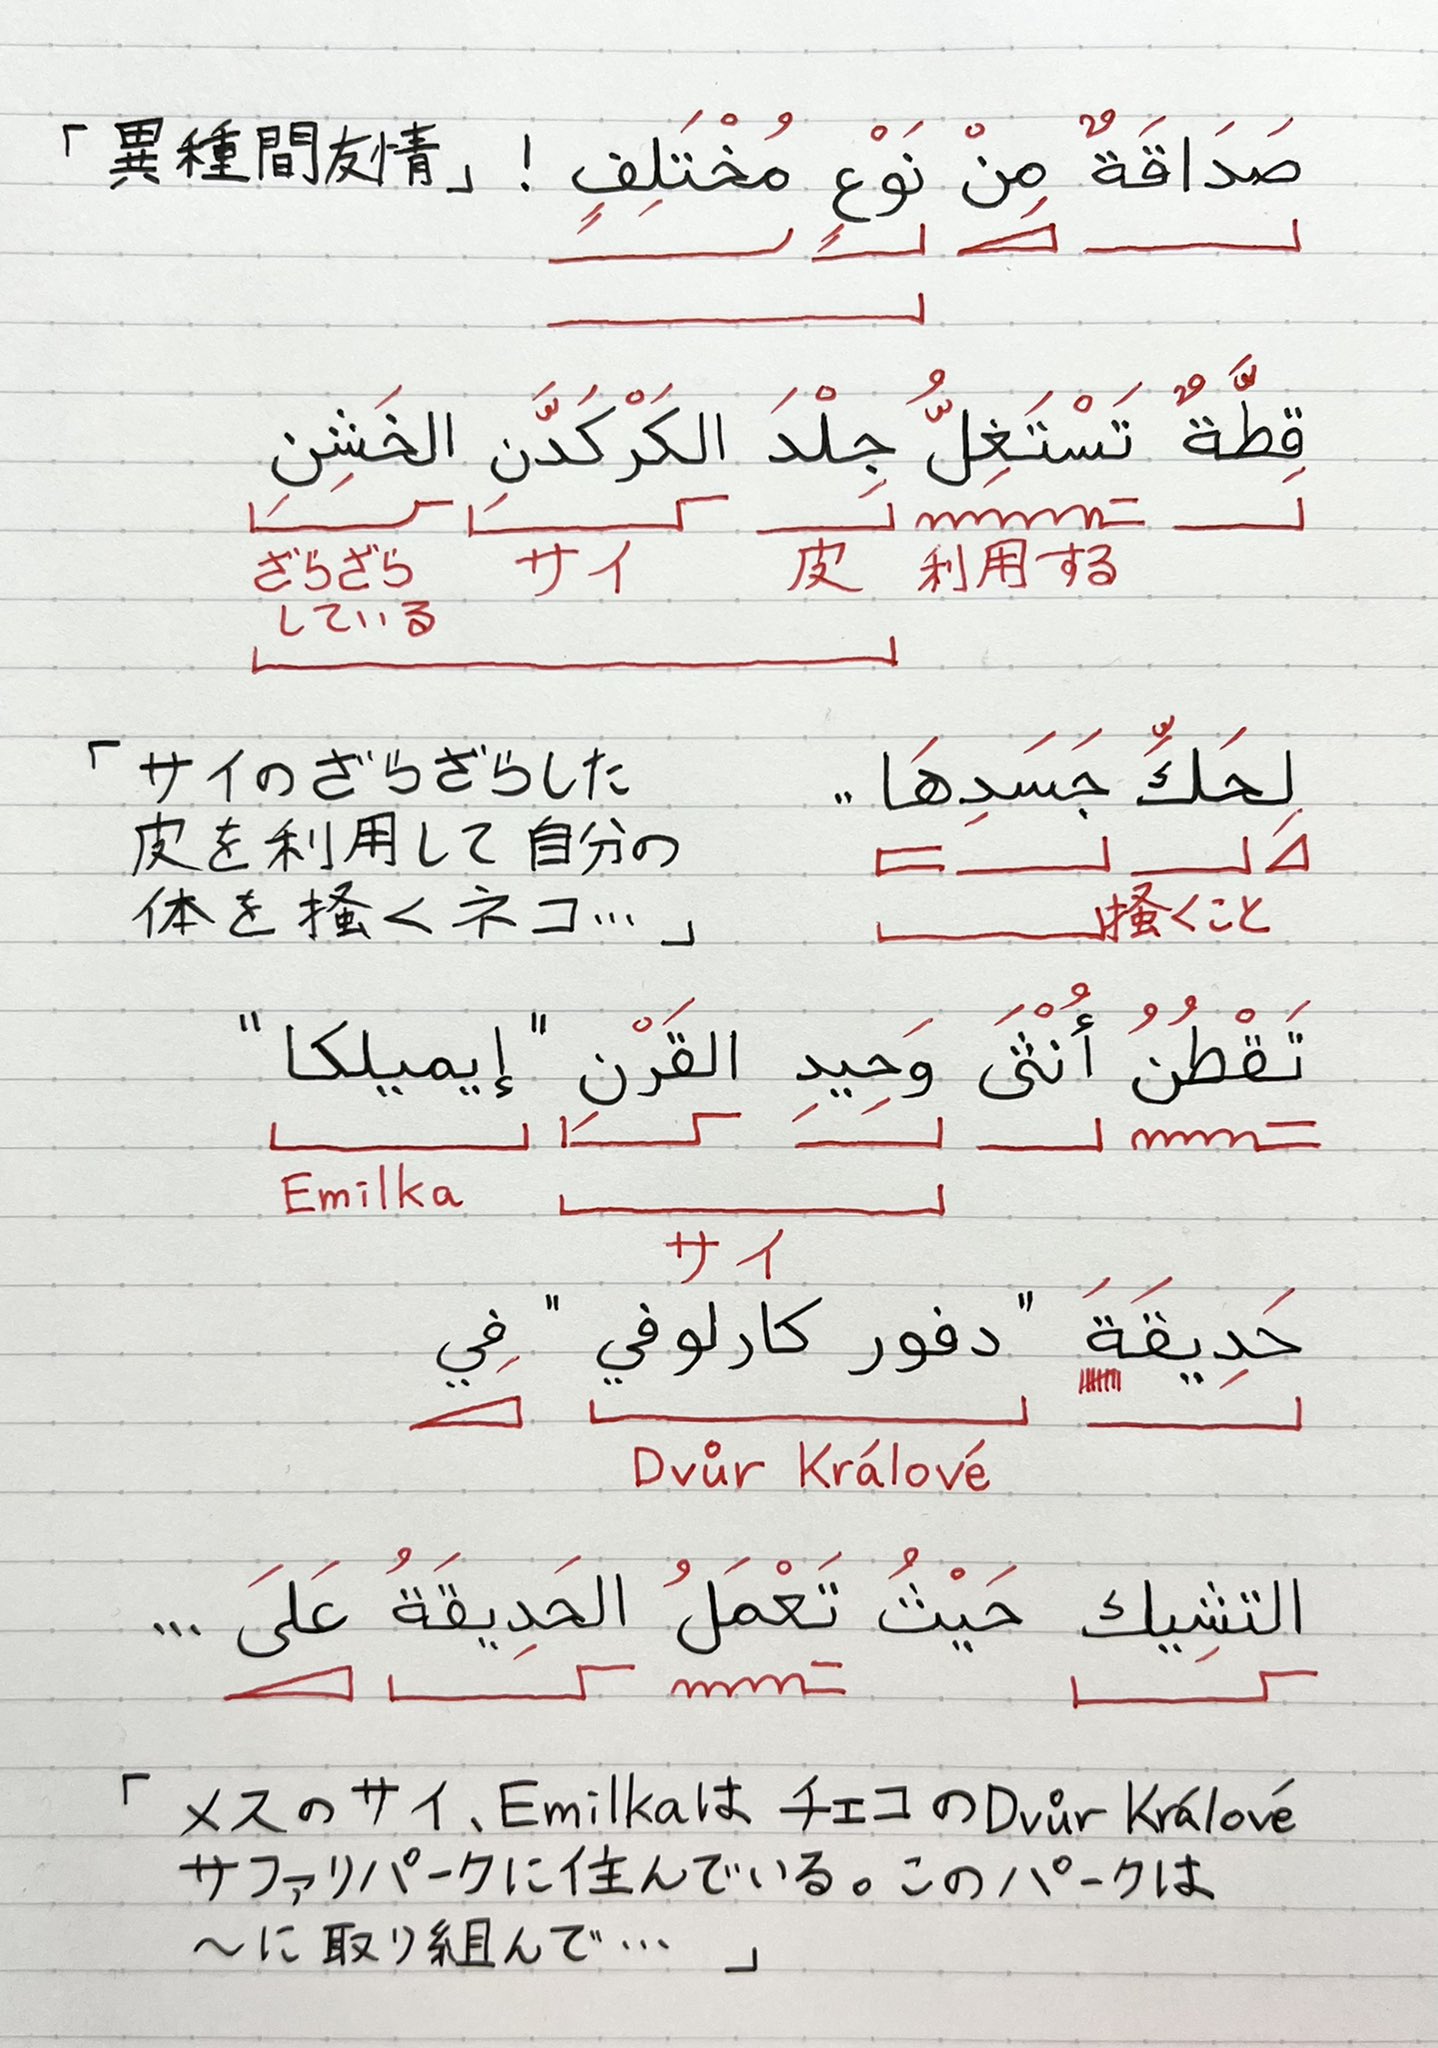 صَدَاقَةٌ مِنْ نَوْعٍ مُخْتَلِفٍ ! 「異種間友情」
قِطَّةٌ تَسْتَغِلُّ جِلْدَ الكَرْكَدَّنِ الخَشِنِ
利用する 皮 サイ ざらざら
している
لِحَكِّ جَسَدِهَا ..
掻くこと
「サイのざらざらした
皮を利用して自分の
体を掻くネコ…」
تَقْطُنُ أُنْثَى وَحِيدِ القَرْنِ "إيميلكا"
Emilka
サイ
حَدِيقَةَ "دفور كارلوفي" فِي
Dvůr Králové
التشِيك حَيْثُ تَعْمَلُ الحَدِيقَةُ عَلَى ...
「メスのサイ、Emilkaは チェコのDvůr Králové
サファリパークに住んでいる。このパークは
～に取り組んで… 」